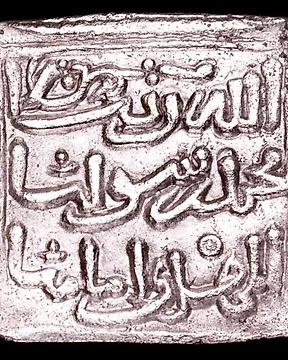 الله ربنا
محمد رسولنا
المهدي امامنا